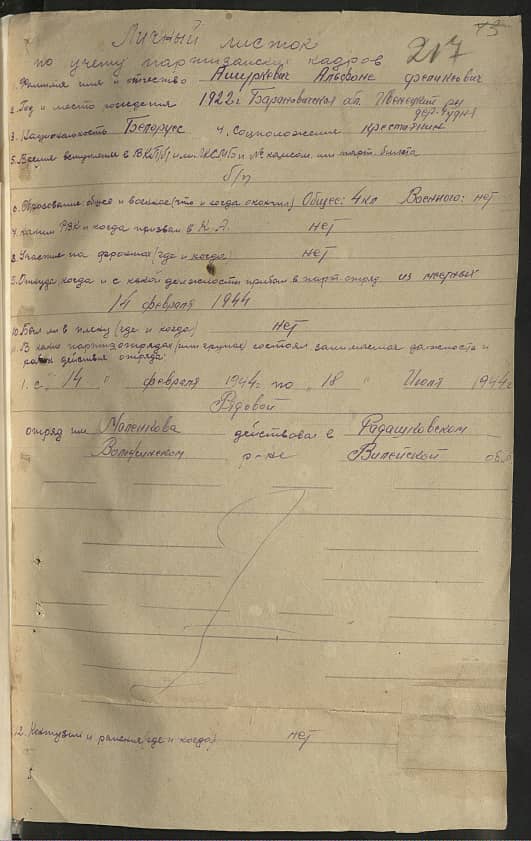 73
Личный листок
217
по учету партизанских кадров
1. Фамилия имя и отчество Ашуркевич Альфонс
2. Год и место рождения 1922 г. Барановичская обл. Ивенецкий рн
дер.
3. Национальность Белорус 4. Соцположение крестьянин
5. Время вступления в ВКП/б/ или ЛКСМБ и № комсом. или парт. билета
б/п
6. Образование общее и военное (что и когда окончил) Общее: 4 кл Военного: нет
7. Каким РВК и когда призван в К.А. нет
8. Участие на фронтах (где и когда) нет
9. Откуда когда и с какой должности прибыл в парт. отряд из местных
14 февраля 1944
10. Был ли в плену (где и когда) нет
11. В каких партизотрядах (или группах) состоял занимаемая должность и
район действия отряда:
1. с " 14 " февраля 1944 г. по " 18 " Июля 1944 г.
Рядовой
отряд им Маленкова действовал в Радашковском
р-не Вилейской обл
12. Контузии и ранения (где и когда) нет